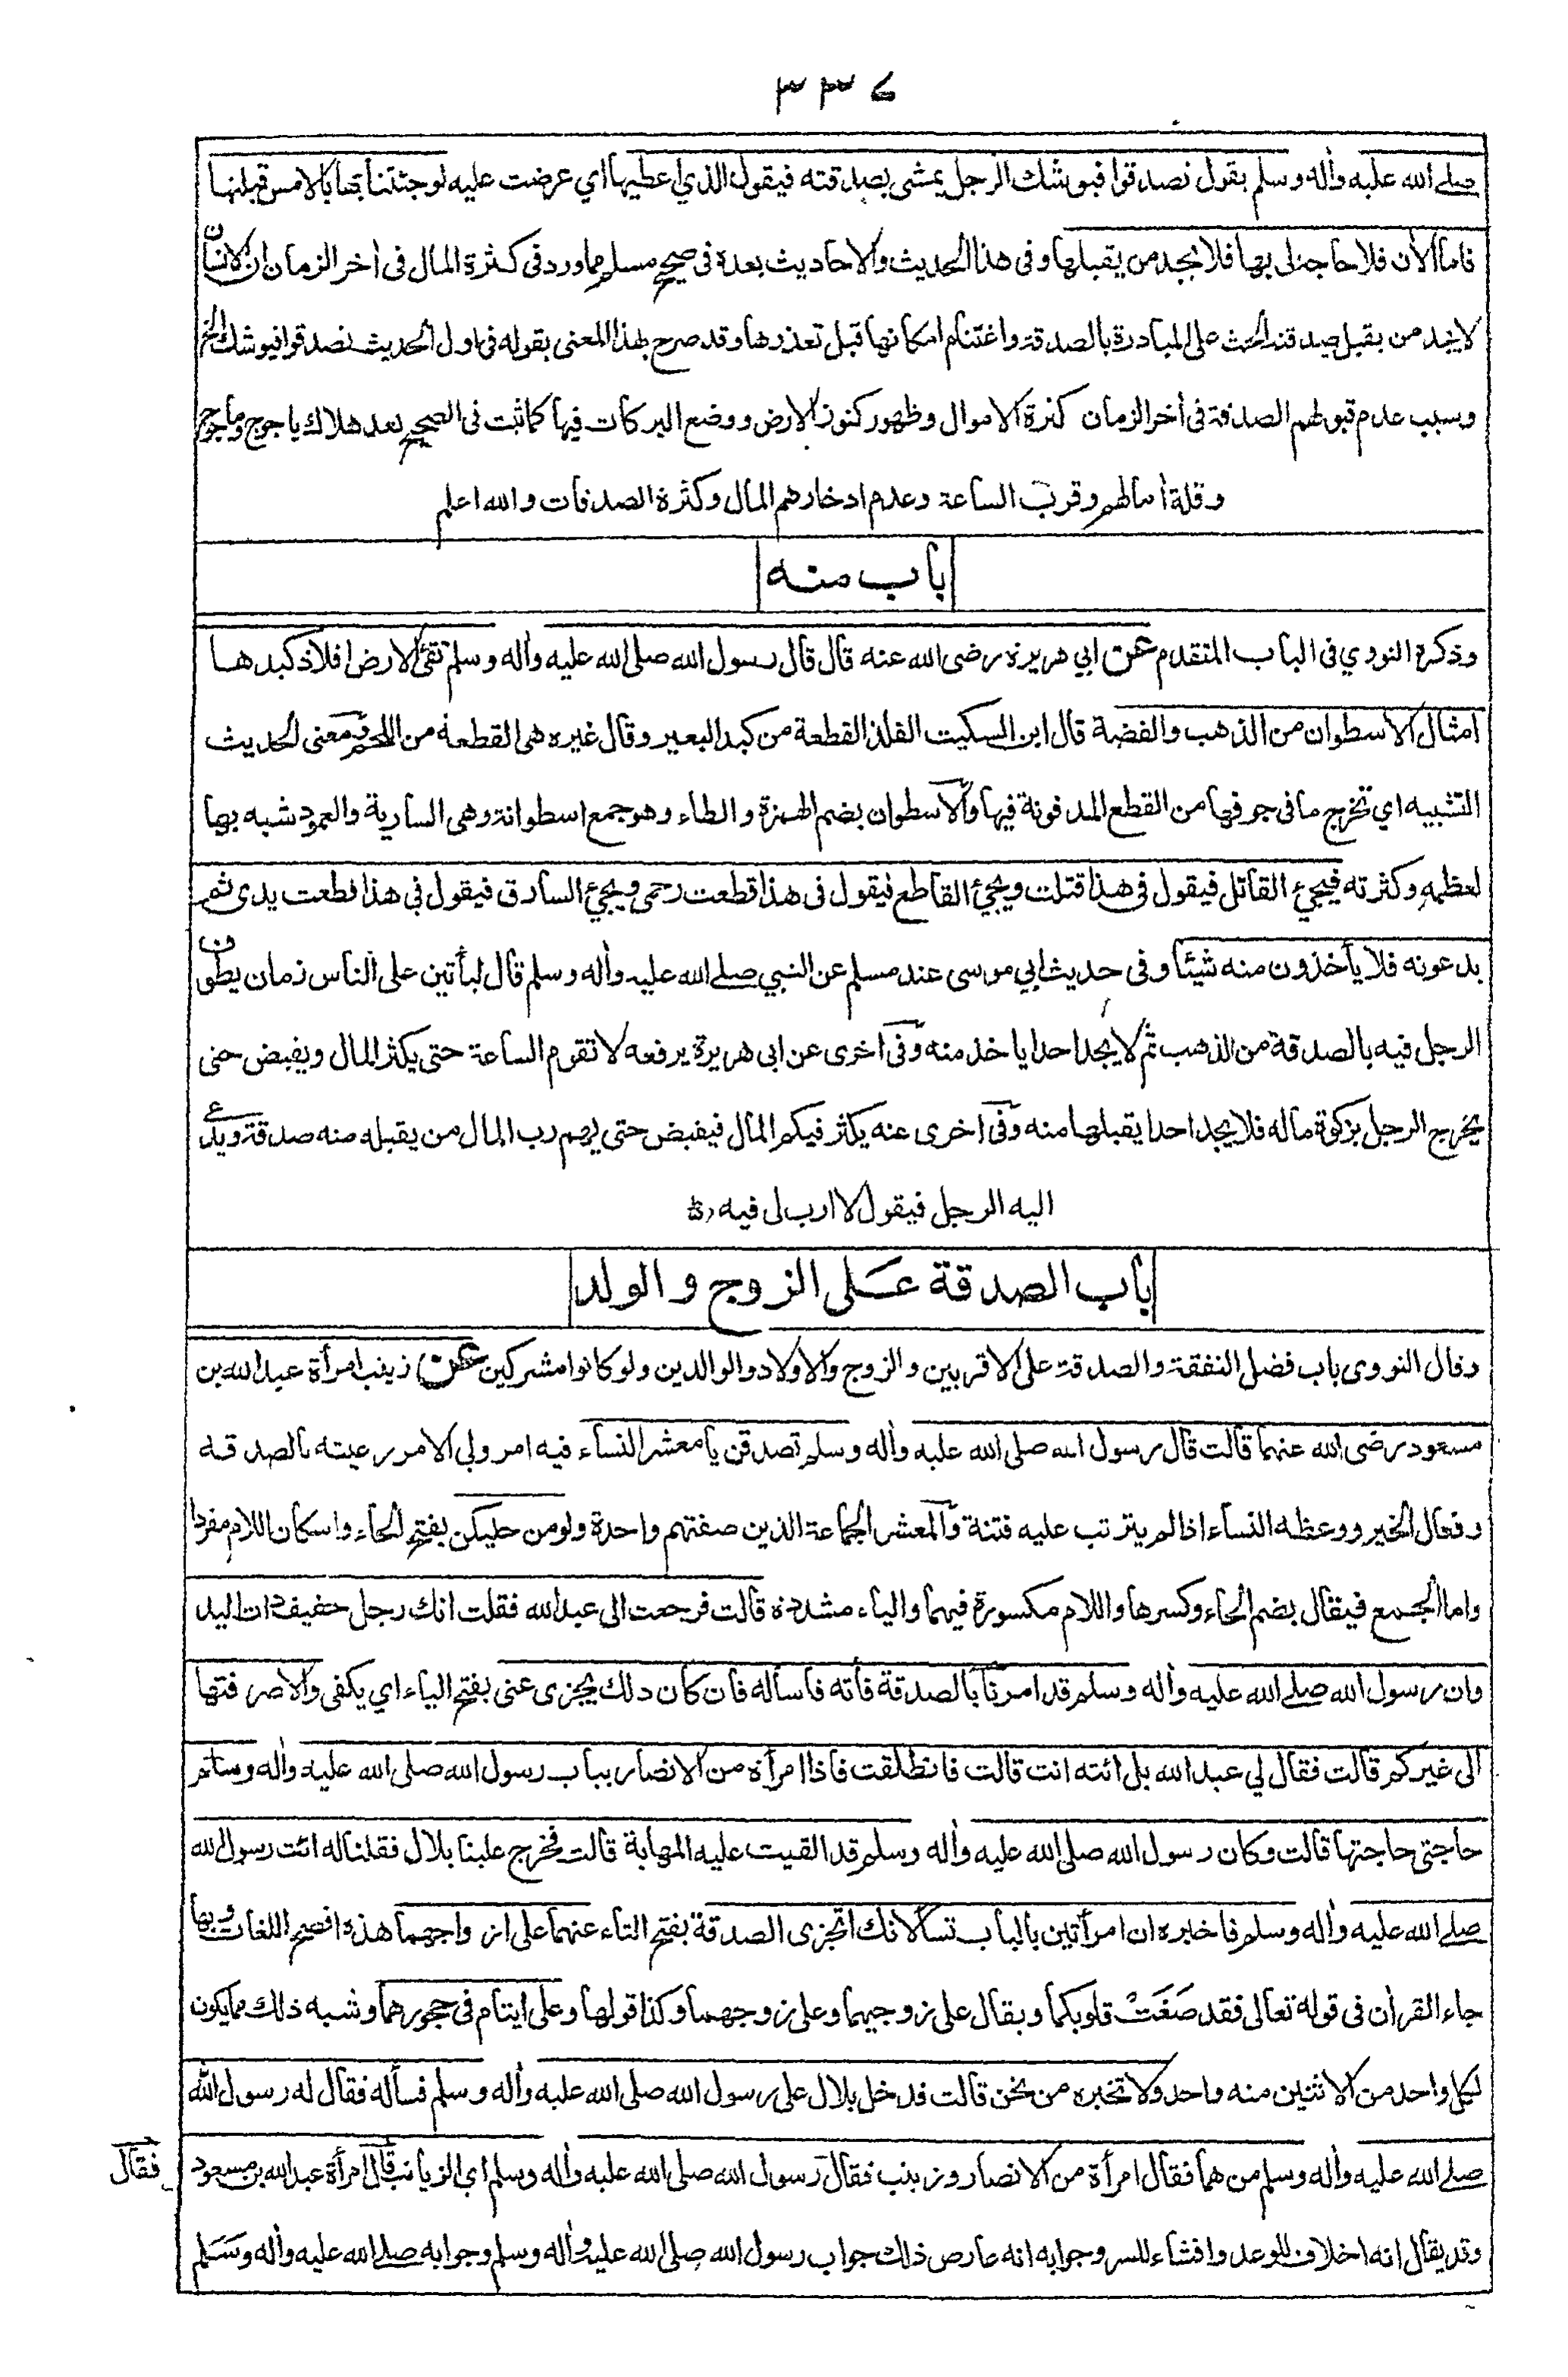 ٣٣٤
صلى الله عليه وأله وسلم يقول تصدقوا فيوشك الرجل يمشي بصدقته فيقول الذي اعطيها اي عرضت عليه لوجئتنا بها بالامس قبلتها
فاما الأن فلا حاجة لي بها فلا يجد من يقبلها وفى هذا الحديث والاحاديث بعده فى صحيح مسلم مما ورد فى كثرة المال فى أخر الزمان ان الانسان
لا يجد من يقبل صدقته الحث على المبادرة بالصدقة واغتنام امكانها قبل تعذرها وقد صرح بهذا المعنى بقوله فى اول الحديث تصدقوا فيوشك الخ
وسبب عدم قبولهم الصدقة فى أخر الزمان كثرة الاموال وظهور كنوز الارض ووضع البركات فيها كما ثبت فى الصحيح بعد هلاك ياجوج وماجوج
وقلة أمالهم وقرب الساعة وعدم ادخارهم المال وكثرة الصدقات والله اعلم
باب منه
وذكره النووي فى الباب المتقدم عن ابي هريرة رضى الله عنه قال قال رسول الله صلى الله عليه وأله وسلم تقئ الارض افلاذ كبدها
امثال الاسطوان من الذهب والفضة قال ابن السكيت الفلذ القطعة من كبد البعير وقال غيره هى القطعة من اللحم ومعنى الحديث
التشبيه اي تخرج ما فى جوفها من القطع المدفونة فيها والاسطوان بضم الهمزة والطاء وهو جمع اسطوانة وهى السارية والعمود شبه بها
لعظمه وكثرته فيجئ القاتل فيقول فى هذا قتلت ويجئ القاطع فيقول فى هذا قطعت رحمى ويجئ السارق فيقول فى هذا قطعت يدى ثم
يدعونه فلا يأخذون منه شيئا وفى حديث ابي موسى عند مسلم عن النبي صلى الله عليه وأله وسلم قال ليأتين على الناس زمان يطوف
الرجل فيه بالصدقة من الذهب ثم لا يجد احدا ياخذ منه وفى اخرى عن ابى هريرة يرفعه لا تقوم الساعة حتى يكثر المال ويفيض حتى
يخرج الرجل بزكوة ماله فلا يجد احدا يقبلها منه وفى اخرى عنه يكثر فيكم المال فيفيض حتى يهم رب المال من يقبله منه صدقة ويدعى
اليه الرجل فيقول لا ارب لى فيه
باب الصدقة على الزوج والولد
وقال النووى باب فضل النفقة والصدقة على الاقربين والزوج والاولاد والوالدين ولو كانوا مشركين عن زينب امرأة عبد الله بن
مسعود رضى الله عنهما قالت قال رسول الله صلى الله عليه وأله وسلم تصدقن يا معشر النساء فيه امر ولي الامر رعيته بالصدقة
وفعال الخير ووعظه النساء اذا لم يترتب عليه فتنة والمعشر الجماعة الذين صفتهم واحدة ولو من حليكن بفتح الحاء واسكان اللام مفردا
واما الجمع فيقال بضم الحاء وكسرها واللام مكسورة فيهما والياء مشددة قالت فرجعت الى عبد الله فقلت انك رجل خفيف ذات اليد
وان رسول الله صلى الله عليه وأله وسلم قد امرنا بالصدقة فأته فاسأله فان كان ذلك يجزى عنى بفتح الياء اي يكفى والا صرفتها
الى غيركم قالت فقال لي عبد الله بل ائته انت قالت فانطلقت فاذا امرأة من الانصار بباب رسول الله صلى الله عليه وأله وسلم
حاجتى حاجتها قالت وكان رسول الله صلى الله عليه وأله وسلم قد القيت عليه المهابة قالت فخرج علينا بلال فقلنا له ائت رسول الله
صلى الله عليه وأله وسلم فاخبره ان امرأتين بالباب تسألانك اتجزى الصدقة بفتح التاء عنهما على ازواجهما هذه افصح اللغات وبها
جاء القرأن فى قوله تعالى فقد صَغَتْ قلوبكما ويقال على زوجيهما وعلى زوجهما وكذا قولها وعلى ايتام فى حجورهما وشبه ذلك مما يكون
لكل واحد من الاثنين منه واحد ولا تخبره من نحن قالت فدخل بلال على رسول الله صلى الله عليه وأله وسلم فسأله فقال له رسول الله
صلى الله عليه وأله وسلم من هما فقال امرأة من الانصار وزينب فقال رسول الله صلى الله عليه وأله وسلم اى الزيانب قال امرأة عبد الله بن مسعود
فقال
وقد يقال انه اخلاف للوعد وافشاء للسر وجوابه انه عارض ذلك جواب رسول الله صلى الله عليه وأله وسلم وجوابه صلى الله عليه وأله وسَلم